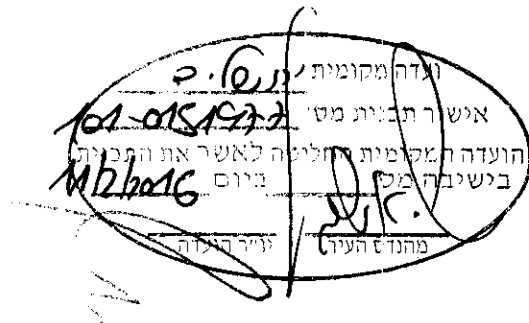 ועדה מקומית ירושלים
אישור תכנית מס' 101-0151977
הועדה המקומית החליטה לאשר את התכנית
בישיבה מס' ביום 11/2/2016
מהנדס העיר יו"ר הועדה